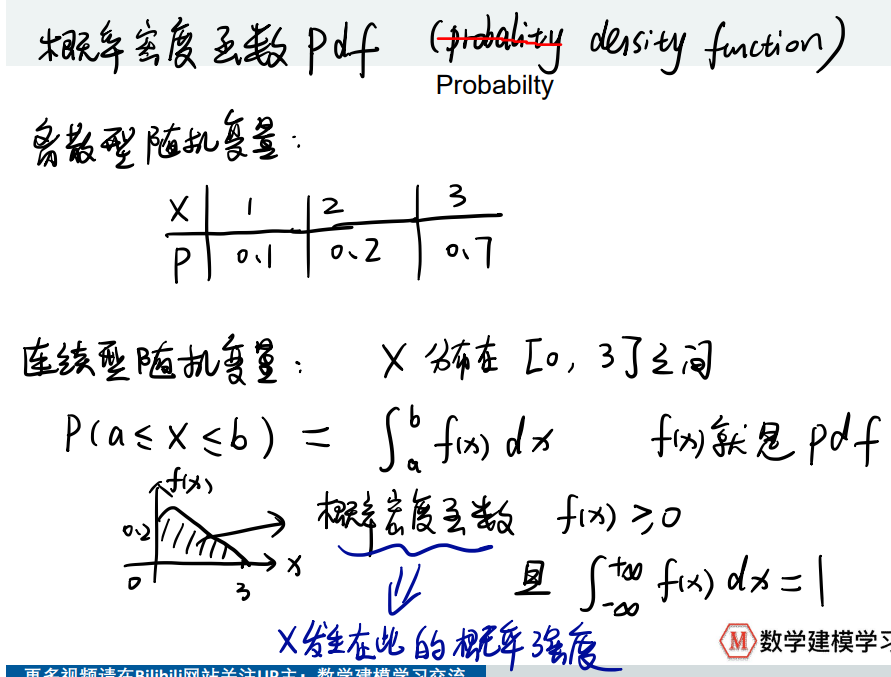 概率密度函数 pdf (probality density function)
Probabilty
离散型随机变量:
X 1 2 3
P 0.1 0.2 0.7
连续型随机变量: X 分布在 [0, 3] 之间
P(a≤X≤b) = ∫_a^b f(x) dx f(x)就是 pdf
f(x)
0.2
0 3 x
概率密度函数 f(x) ≥ 0
且 ∫_{-∞}^{+∞} f(x) dx = 1
X发生在此的概率强度
M 数学建模学习
更多视频请在Bilibili网站关注UP主:数学建模学习交流